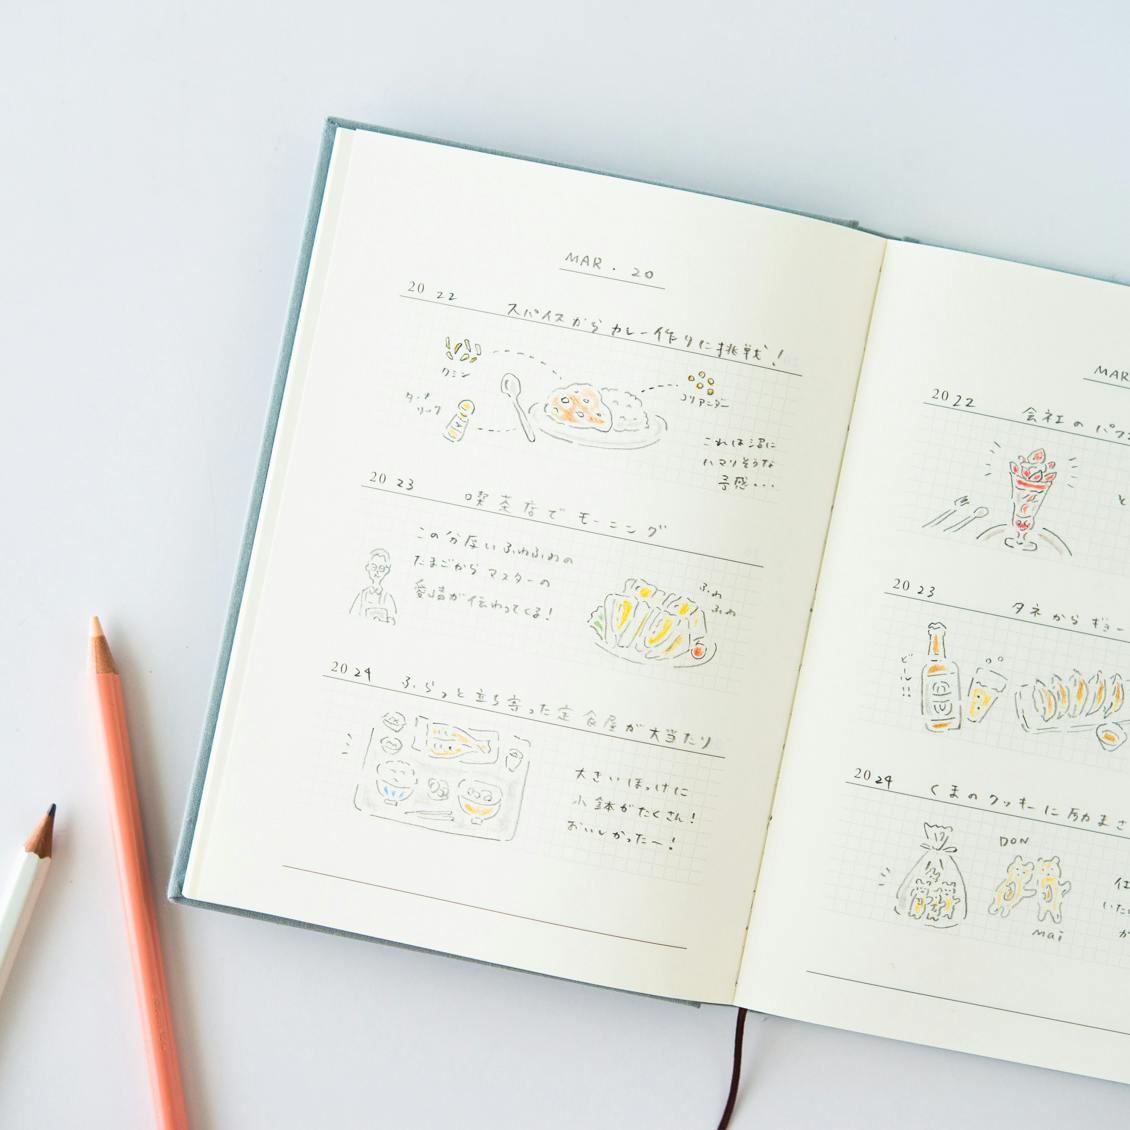 MAR. 20
2022 スパイスからカレー作りに挑戦!
クミン
ターメリック
コリアンダー
これは沼に
ハマりそうな
予感・・・
2023 喫茶店でモーニング
この分厚いふわふわの
たまごからマスターの
愛情が伝わってくる!
ふわ
ふわ
2024 ふらっと立ち寄った定食屋が大当たり
大きいほっけに
小鉢がたくさん!
おいしかったー!
MAR
2022 会社のパフ
と
2023 タネからギョー
ビール!!
2024 くまのクッキーに励まさ
DON
mai
いた
か